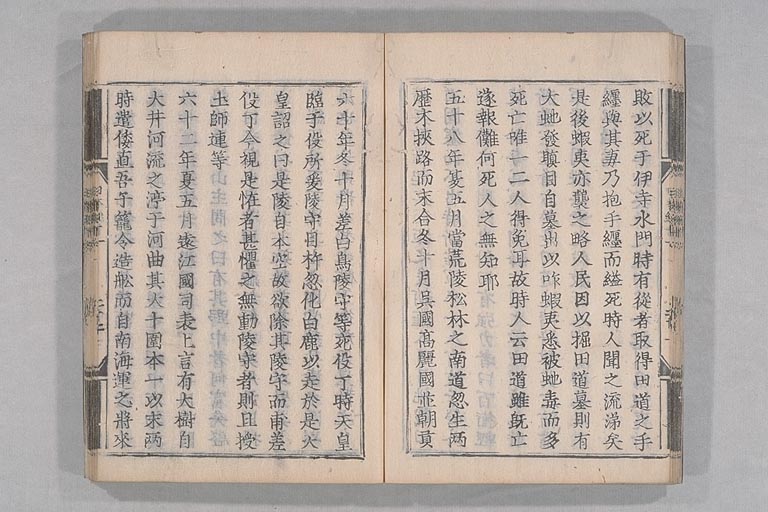 敗以死于伊寺水門時有從者取得田道之手
纒與其妻乃抱手纒而縊死時人聞之流涕矣
是後蝦夷亦襲之略人民因以掘田道墓則有
大虵發瞋目自墓出以咋蝦夷悉被虵毒而多
死亡唯一二人得免耳故時人云田道雖既亡
遂報讎何死人之無知耶
五十八年夏五月當荒陵松林之南道忽生兩
歷木挾路而末合冬十月吳國高麗國並朝貢
六十年冬十月差白鳥陵守等死役丁時天皇
臨于役所爰陵守目杵忽化白鹿以走於是天
皇詔之曰是陵自本空故欲除其陵守而甫差
役丁今視是恠者甚懼之無動陵守者則且授
土師連等
六十二年夏五月遠江國司表上言有大樹自
大井河流之渟于河曲其大十圍本一以末兩
時遣倭直吾子籠令造舩而自南海運之將來